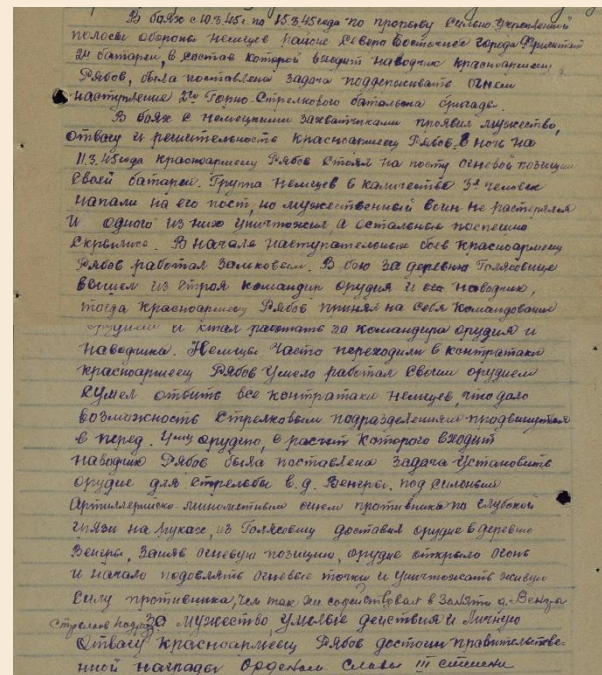 В боях с 10.3.45 г. по 15.3.45 года по прорыву сильно укрепленной
полосы обороны немцев районе Северо Восточнее города
2й батареи, в состав которой входит наводчик красноармеец
Рябов, была поставлена задача поддерживать огнем
наступление 2го Горно-Стрелкового батальона бригады.
В боях с немецкими захватчиками проявил мужество,
отвагу и решительность красноармеец Рябов. В ночь на
11.3.45 года красноармеец Рябов стоял на посту огневой позиции
своей батареи. Группа немцев в количестве 3х человек
напали на его пост, но мужественный воин не растерялся
и одного из них уничтожил, а остальные поспешно
скрылись. В начале наступательных боев красноармеец
Рябов работал замковым. В бою за деревню
вышел из строя командир орудия и его наводчик,
тогда красноармеец Рябов принял на себя командование
орудием и стал работать за командира орудия и
наводчика. Немцы часто переходили в контратаки
красноармеец Рябов умело работал своим орудием
сумел отбить все контратаки немцев, что дало
возможность стрелковым подразделениям продвинуться
в перед. орудию, в расчет которого входит
наводчик Рябов была поставлена задача установить
орудие для стрельбы в д. Венгры. под сильным
Артиллерийско-минометным огнем противника по глубокой
грязи на руках, из доставил орудие в деревню
Венгры, Заняв огневую позицию, орудие открыло огонь
и начало подовлять огневые точки и уничтожать живую
силу противника, чем так же содействовал в занятии д.
За мужество, умелые действия и личную
Отвагу красноармеец Рябов достоин правительстве-
нной награды Орденом Славы III степени